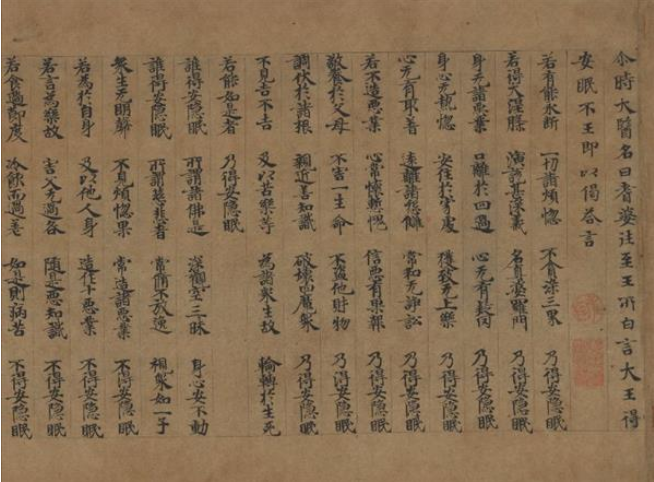 尒時大醫名曰耆婆往至王所白言大王得
安眠不王即以偈荅言
若有能永断 一切諸煩惱 不貪染三界 乃得安隱眠
若得大涅槃 演說甚深義 名真婆羅門 乃得安隱眠
身无諸惡業 口離於四過 心无有疑网 乃得安隱眠
身心无熱惱 安住於寂處 獲致无上樂 乃得安隱眠
心无有取著 遠離諸怨讎 常和无諍訟 乃得安隱眠
若不造惡業 心常懷慚愧 信惡有果報 乃得安隱眠
敬養於父母 不害一生命 不盜他財物 乃得安隱眠
調伏於諸根 親近善知識 破壞四魔衆 乃得安隱眠
不見吉不吉 及以苦樂等 為諸衆生故 輪轉於生死
若能如是者 乃得安隱眠
誰得安隱眠 所謂諸佛是 深觀空三昧 身心安不動
誰得安隱眠 所謂慈悲者 常脩不放逸 視衆如一子
衆生无明瞑 不見煩惱果 常造諸惡業 不得安隱眠
若為於自身 及以他人身 造作十惡業 不得安隱眠
若言為樂故 害父无過咎 隨是惡知識 不得安隱眠
若食過節度 冷飲而過差 如是則病苦 不得安隱眠